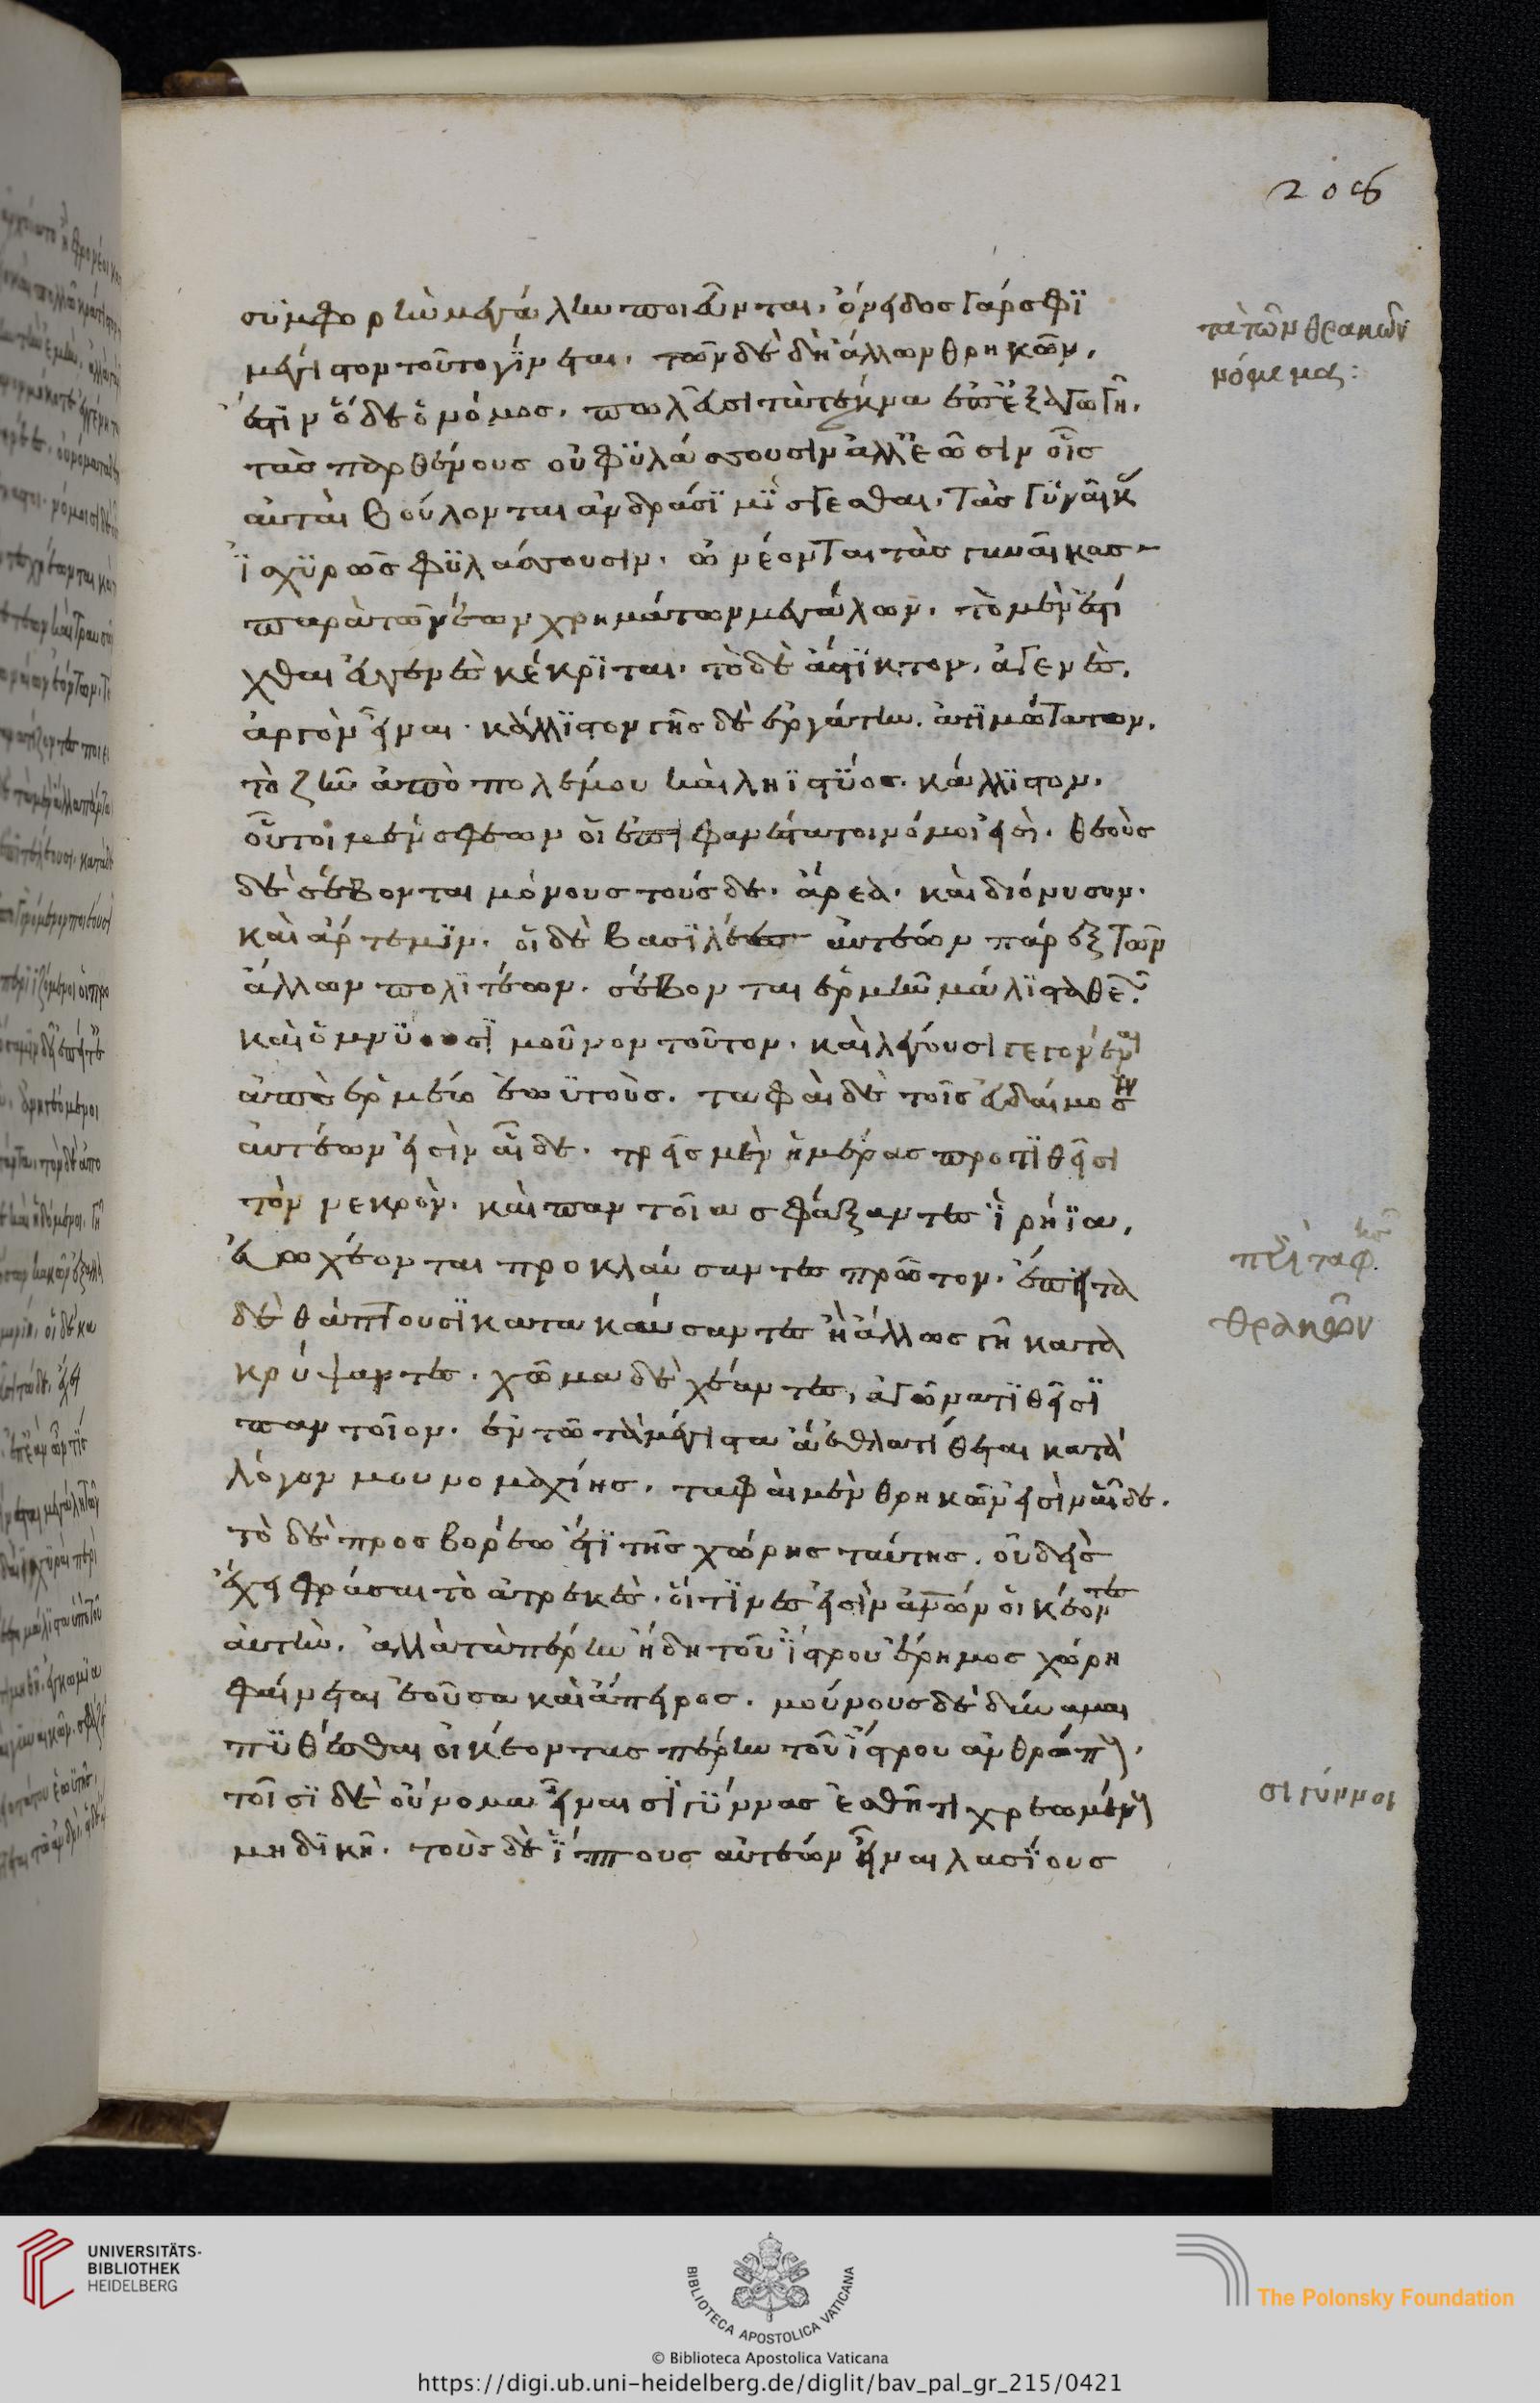 208
συμφορὴν μεγάλην ποιεῦνται· ὄνειδος γάρ σφι
μέγιστον τοῦτο γίνεται. τῶν δὲ δὴ ἄλλων θρηκῶν,
ἐστὶν ὅδε ὁ νόμος. πωλεῦσι τὰ τέκνα ἐπ' ἐξαγωγῆ.
τὰς παρθένους οὐ φυλάσσουσιν ἀλλ' ἐῶσιν οἷς
αὐταὶ βούλονται ἀνδράσι μίσγεσθαι. τὰς γυναῖκ
ἰσχυρῶς φυλάσσουσιν. ὠνέονται τὰς γυναῖκας
παρὰ τῶν γονέων χρημάτων μεγάλων. τὸ μὲν ἐστί
χθαι εὐγενὲς κέκριται. τὸ δὲ ἄστικτον, ἀγενές.
ἀργὸν εἶναι κάλλιστον γῆς δὲ ἐργάτην ἀτιμότατον.
τὸ ζῆν ἀπὸ πολέμου καὶ ληιστύος κάλλιστον.
οὗτοι μέν σφεων οἱ ἐπιφανέστατοι νόμοι εἰσί. θεοὺς
δὲ σέβονται μόνους τούσδε. ἄρεα. καὶ διόνυσον.
καὶ ἄρτεμιν. οἱ δὲ βασιλέες αὐτέων πάρεξ τῶν
ἄλλων πολιτέων. σέβονται ἑρμῆν μάλιστα θε
καὶ ὀμνύουσι μοῦνον τοῦτον. καὶ λέγουσι γεγονέν
ἀπὸ ἑρμέω ἑωϋτούς. ταφαὶ δὲ τοῖς εὐδαίμοσιν
αὐτέων εἰσὶν αἵδε. τρεῖς μὲν ἡμέρας προτιθεῖσι
τὸν νεκρόν. καὶ παντοῖα σφάξαντες ἱρήϊα,
εὐωχέονται προκλαύσαντες πρῶτον. ἔπειτα
δὲ θάπτουσι κατακαύσαντες ἢ ἄλλως γῆ κατα
κρύψαντες. χῶμα δὲ χέαντες, ἀγῶνα τιθεῖσι
παντοῖον. ἐν τῶ τὰ μέγιστα ἄεθλα τίθεται κατὰ
λόγον μουνομαχίης. ταφαὶ μὲν θρηκῶν εἰσὶν αἵδε.
τὸ δὲ προς βορέω ἔτι τῆς χώρης ταύτης. οὐδεὶς
ἔχει φράσαι τὸ ἀτρεκές. οἵτινες εἰσὶν ἄνοι οἱ οἰκέοντες
αὐτήν. ἀλλὰ τὰ πέρην ἤδη τοῦ ἴστρου ἔρημος χώρη
φαίνεται ἐοῦσα καὶ ἄπειρος. μούνους δὲ δύναμαι
πυθέσθαι οἰκέοντας πέρην τοῦ ἴστρου ἀνθρώπ
τοῖσι δὲ οὔνομα εἶναι σιγύννας ἐσθῆτι χρεωμέν
μηδικῆ. τοὺς δὲ ἵππους αὐτέων εἶναι λασίους
τὰ τῶν θρακῶν
νόμιμα:
θρακῶν
σιγύννοι
UNIVERSITÄTS-
BIBLIOTHEK
HEIDELBERG
BIBLIOTECA APOSTOLICA VATICANA
© Biblioteca Apostolica Vaticana
The Polonsky Foundation
https://digi.ub.uni-heidelberg.de/diglit/bav_pal_gr_215/0421